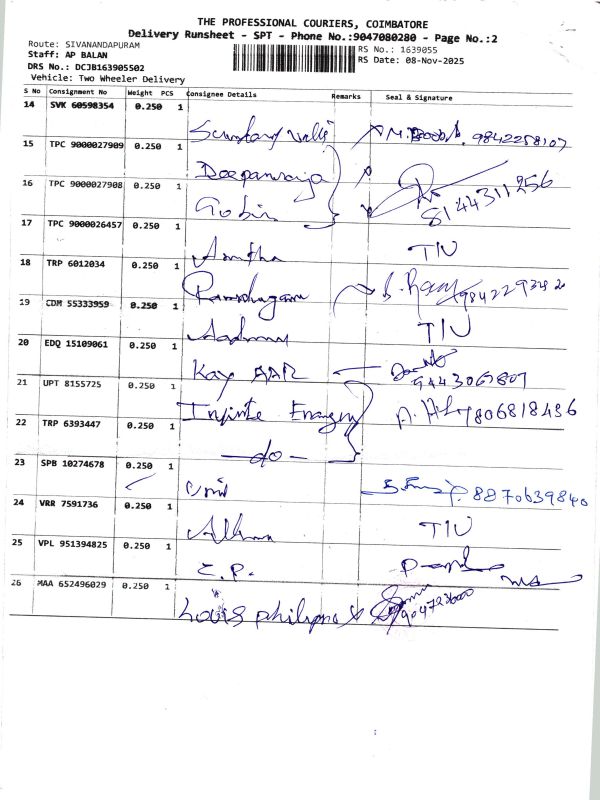 THE PROFESSIONAL COURIERS, COIMBATORE
Delivery Runsheet - SPT - Phone No.:9047080280 - Page No.:2
Route: SIVANANDAPURAM
Staff: AP BALAN
DRS No.: DCJB163905502
Vehicle: Two Wheeler Delivery
RS No.: 1639055
RS Date: 08-Nov-2025
S No Consignment No Weight PCS Consignee Details Remarks Seal & Signature
14 SVK 60598354 0.250 1 9842258107
15 TPC 9000027909 0.250 1
16 TPC 9000027908 0.250 1 Gobin 8144311256
17 TPC 9000026457 0.250 1 TIU
18 TRP 6012034 0.250 1
19 CDM 55333959 0.250 1 TIU
20 EDQ 15109061 0.250 1 Kay AAR 9443067807
21 UPT 8155725 0.250 1 Infinite 9806818436
22 TRP 6393447 0.250 1 -do-
23 SPB 10274678 0.250 1 8870639840
24 VRR 7591736 0.250 1 TIU
25 VPL 951394825 0.250 1 C.P.
26 MAA 652496029 0.250 1 Louis Philippe